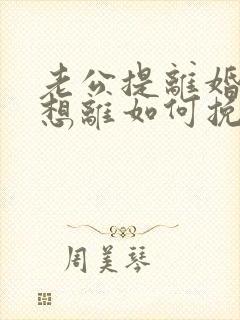 老公提離婚
想離如何挽
周美琴